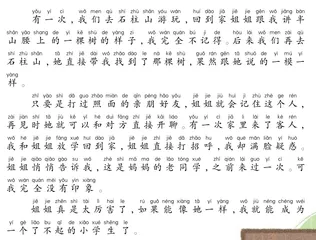 yǒu yí cì wǒ men qù shí zhù shān yóu wán huí dào jiā jiě jie gēn wǒ jiǎng bàn
有一次，我们去石柱山游玩，回到家姐姐跟我讲半
shān yāo shàng de yì kē shù de yàng zi wǒ wán quán bú jì dé hòu lái wǒ men zài qù
山腰上的一棵树的样子，我完全不记得。后来我们再去
shí zhù shān tā zhí jiē dài wǒ zhǎo dào le nà kē shù guǒ rán gēn tā shuō de yì mú yí
石柱山，她直接带我找到了那棵树，果然跟她说的一模一
yàng
样。
zhǐ yào shì dǎ guò zhào miàn de qīn péng hǎo yǒu jiě jie jiù huì jì zhù zhè ge rén
只要是打过照面的亲朋好友，姐姐就会记住这个人，
zài jiàn shí tā jiù kě yǐ hé duì fāng zhí jiē kāi liáo yǒu yí cì jiā lǐ lái le kè rén
再见时她就可以和对方直接开聊。有一次家里来了客人，
wǒ hé jiě jie fàng xué huí dào jiā jiě jie zhí jiē dǎ zhāo hu wǒ què mǎn liǎn yí huò
我和姐姐放学回到家，姐姐直接打招呼，我却满脸疑惑。
jiě jie qiāo qiāo gào su wǒ zhè shì mā ma de lǎo tóng xué zhī qián lái guò yí cì kě
姐姐悄悄告诉我，这是妈妈的老同学，之前来过一次。可
wǒ wán quán méi yǒu yìn xiàng
我完全没有印象。
jiě jie zhēn shì tài lì hai le rú guǒ néng xiàng tā yí yàng wǒ jiù néng chéng wéi
姐姐真是太厉害了，如果能像她一样，我就能成为
yí gè liǎo bu qǐ de xiǎo xué shēng le
一个了不起的小学生了。